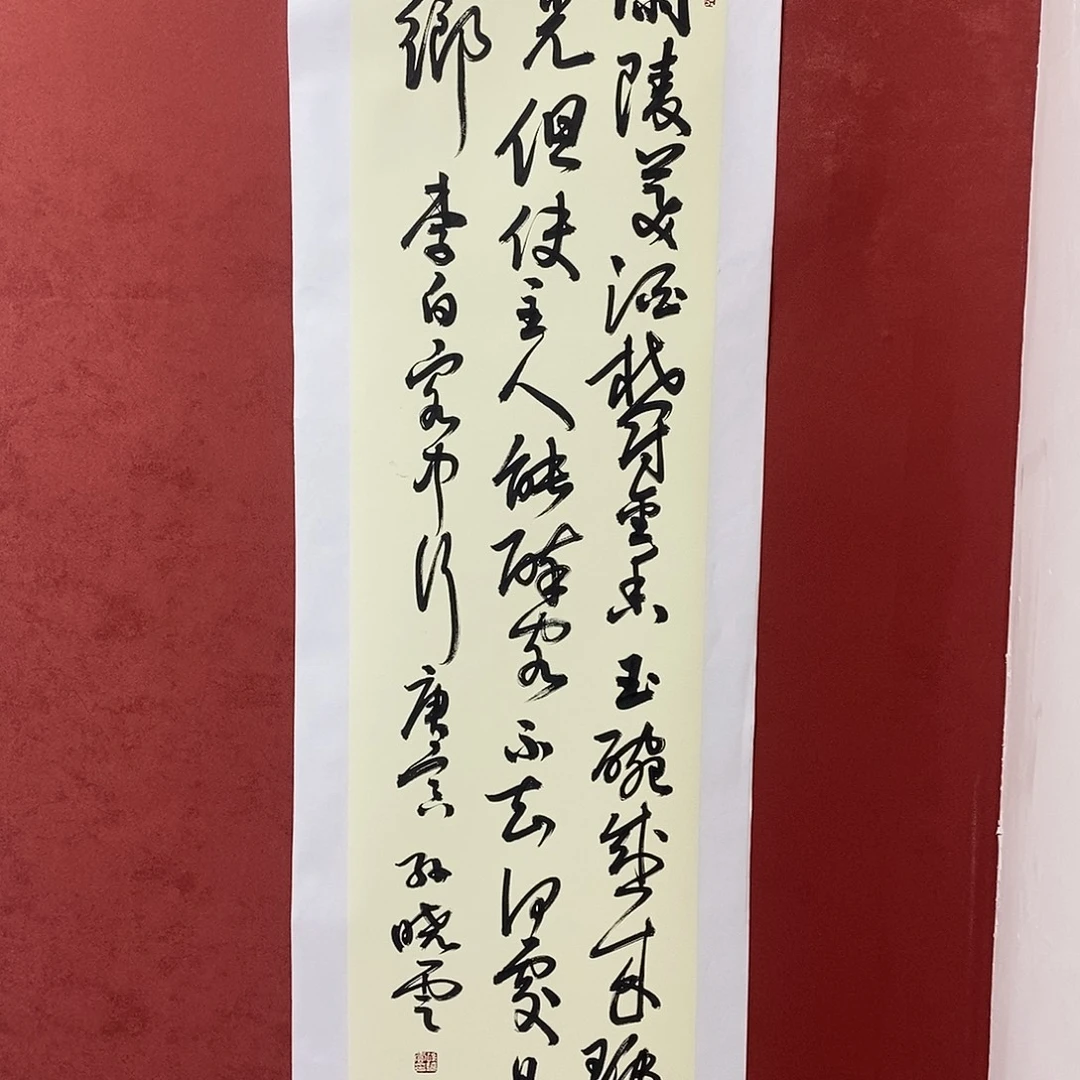 蘭陵美酒鬱金香玉碗盛來琥
光但使主人能醉客不知何處是
鄉 李白客中行 庚寅 孫曉雲